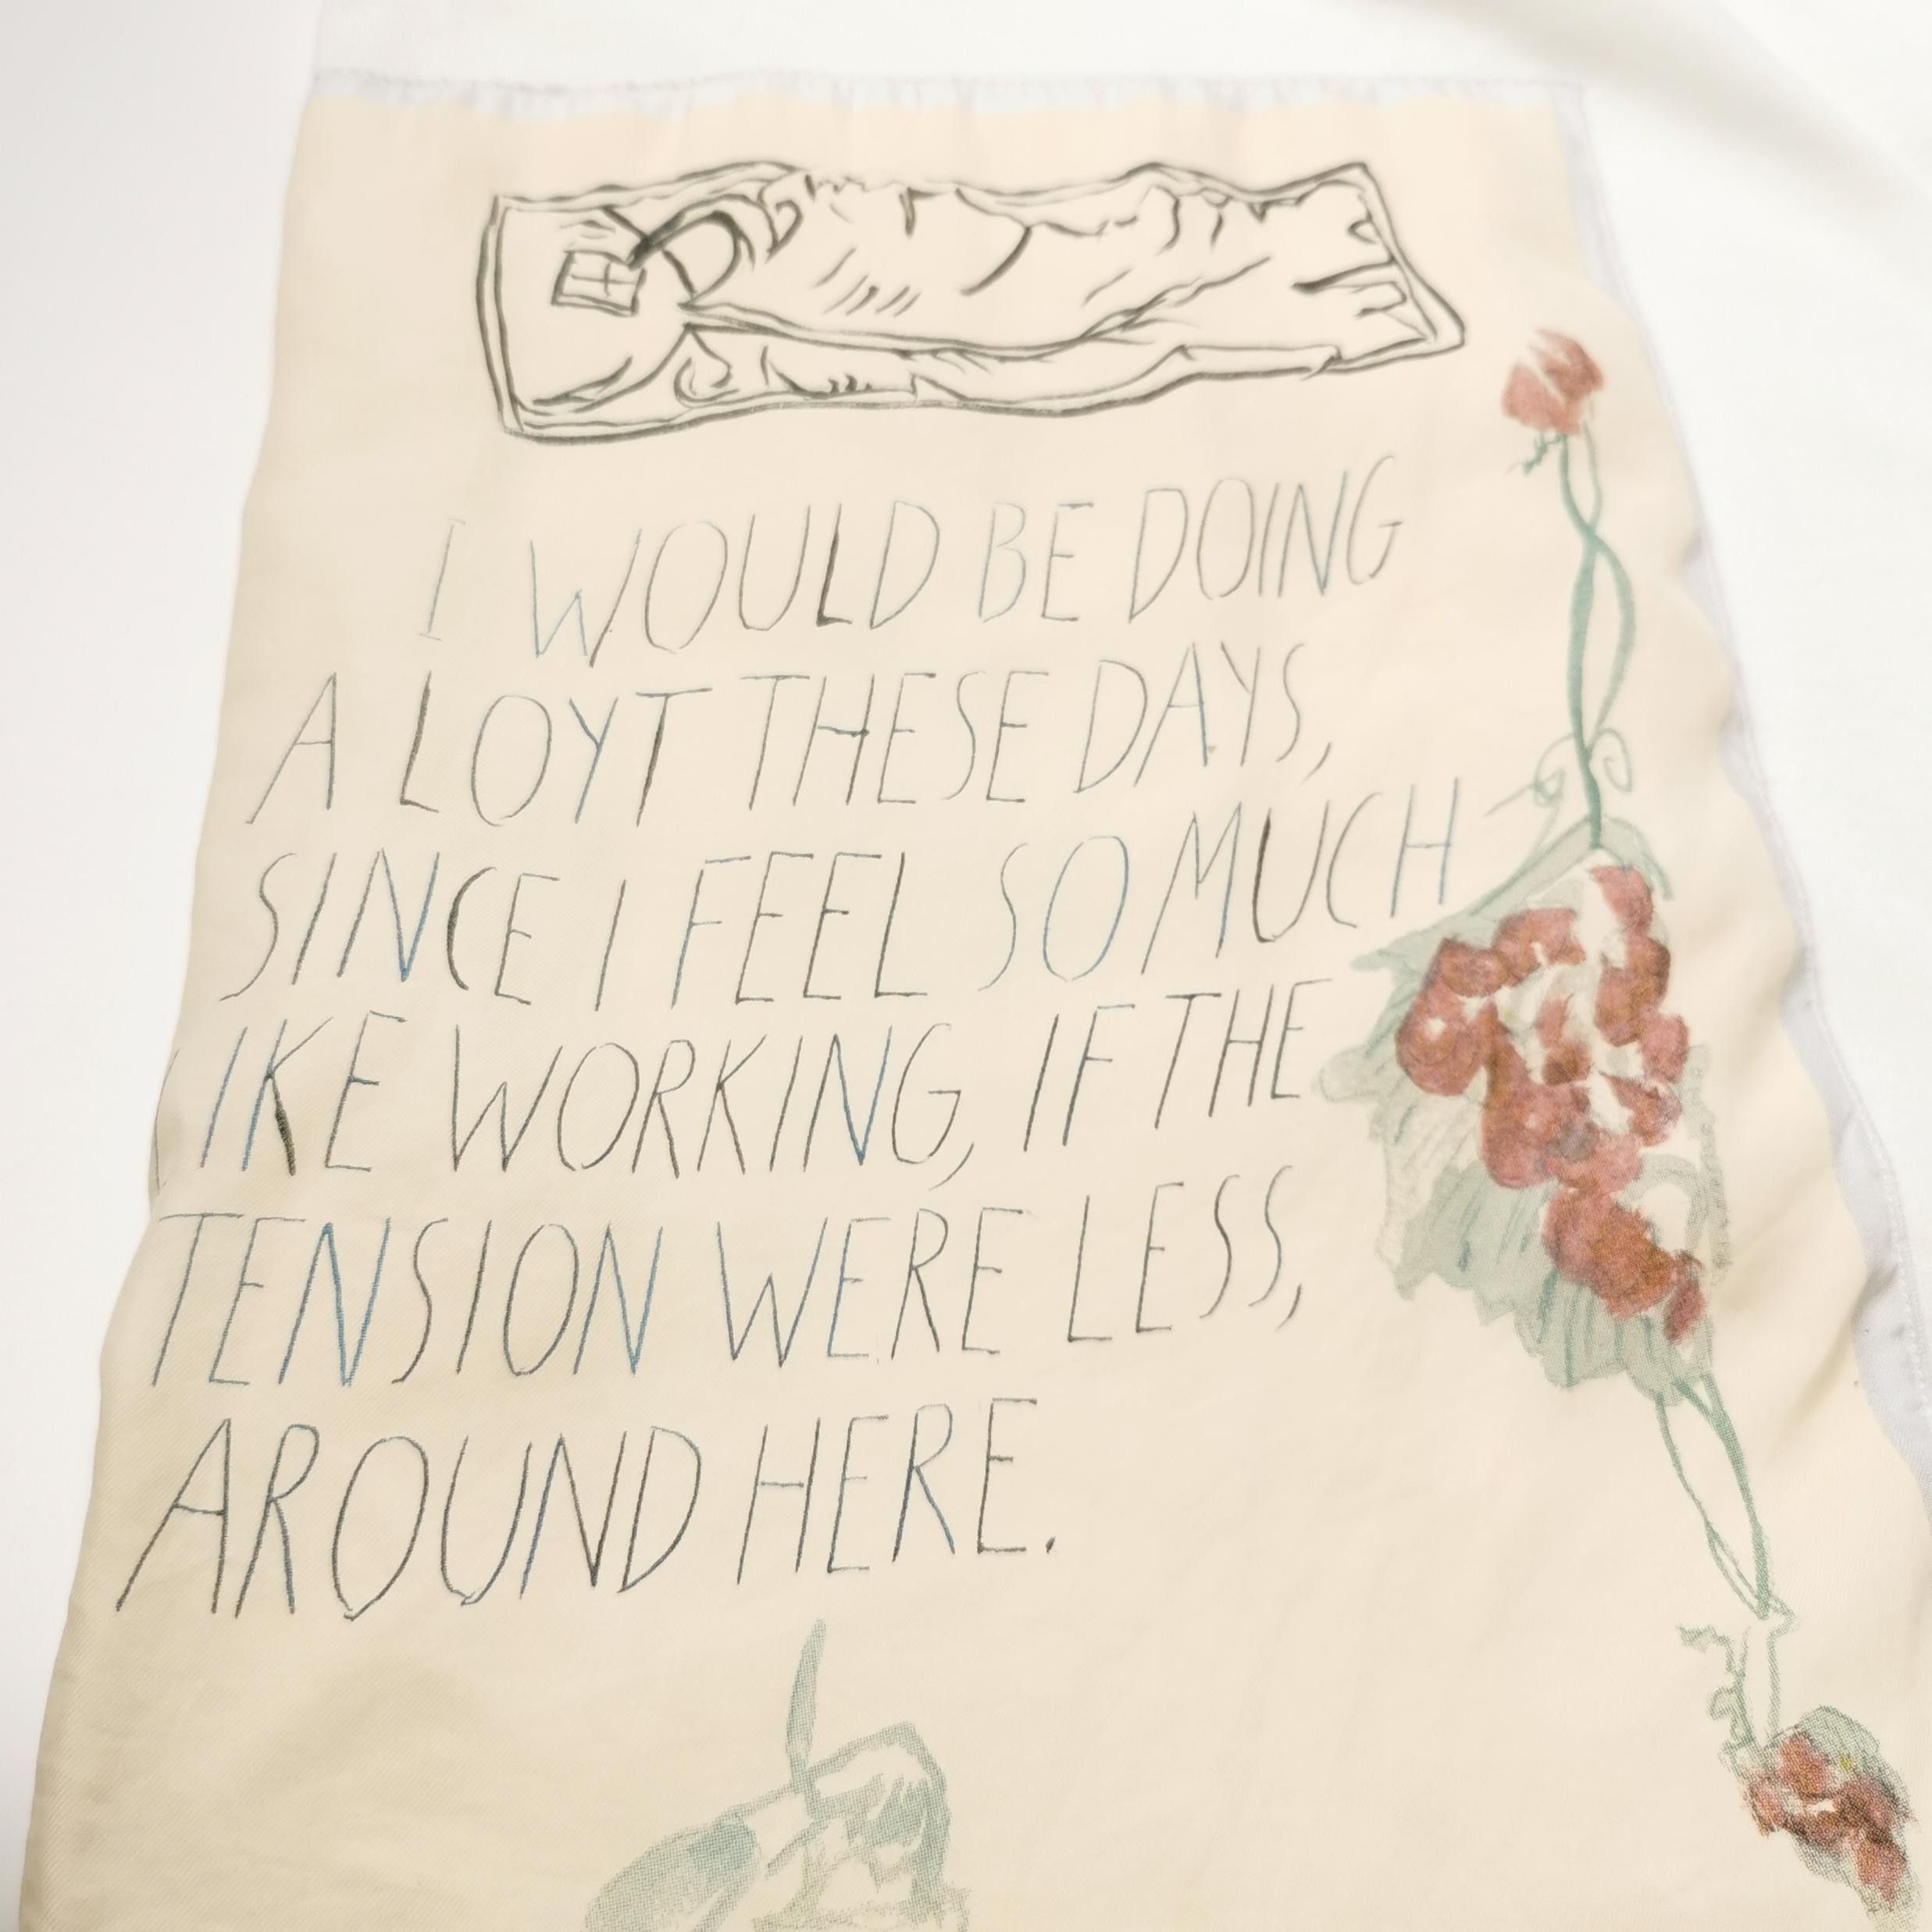 I WOULD BE DOING
A LOYT THESE DAYS,
SINCE I FEEL SO MUCH
LIKE WORKING, IF THE
TENSION WERE LESS,
AROUND HERE.